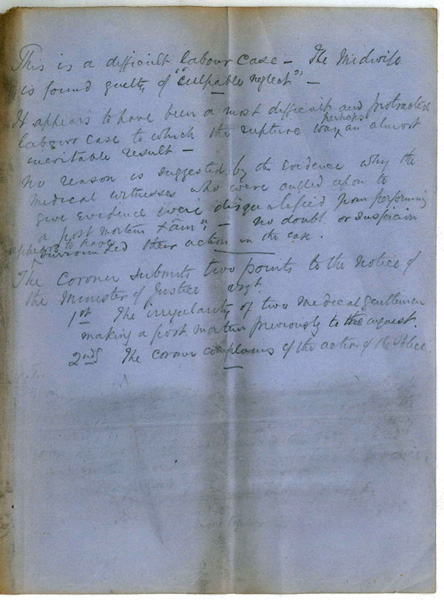 This is a difficult labour case – The Midwife
is found guilty of "culpable neglect" –
It appears to have been a most difficult and protracted
labour case to which the rupture was perhaps an almost
inevitable result –
No reason is suggested by the Evidence why the
medical witnesses who were called upon to
give Evidence were disqualified from performing
a post mortem – no doubt or suspicion
appears to have
surrounded their action in the case.
The Coroner submits two points to the notice of
the Minister of Justice
1st The irregularity of two medical gentlemen
making a post mortem previously to the inquest.
2nd The coroner complains of the action of the Police